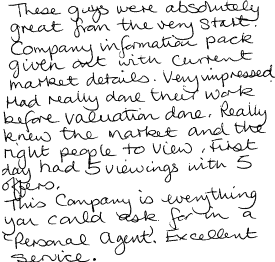 These guys were absolutely
great from the very start.
Company information pack
given out with current
market details. Very impressed.
Had really done their work
before valuation done. Really
knew the market and the
right people to view. First
day had 5 viewings with 5
offers.
This Company is everything
you could ask for in a
"Personal Agent". Excellent
service.